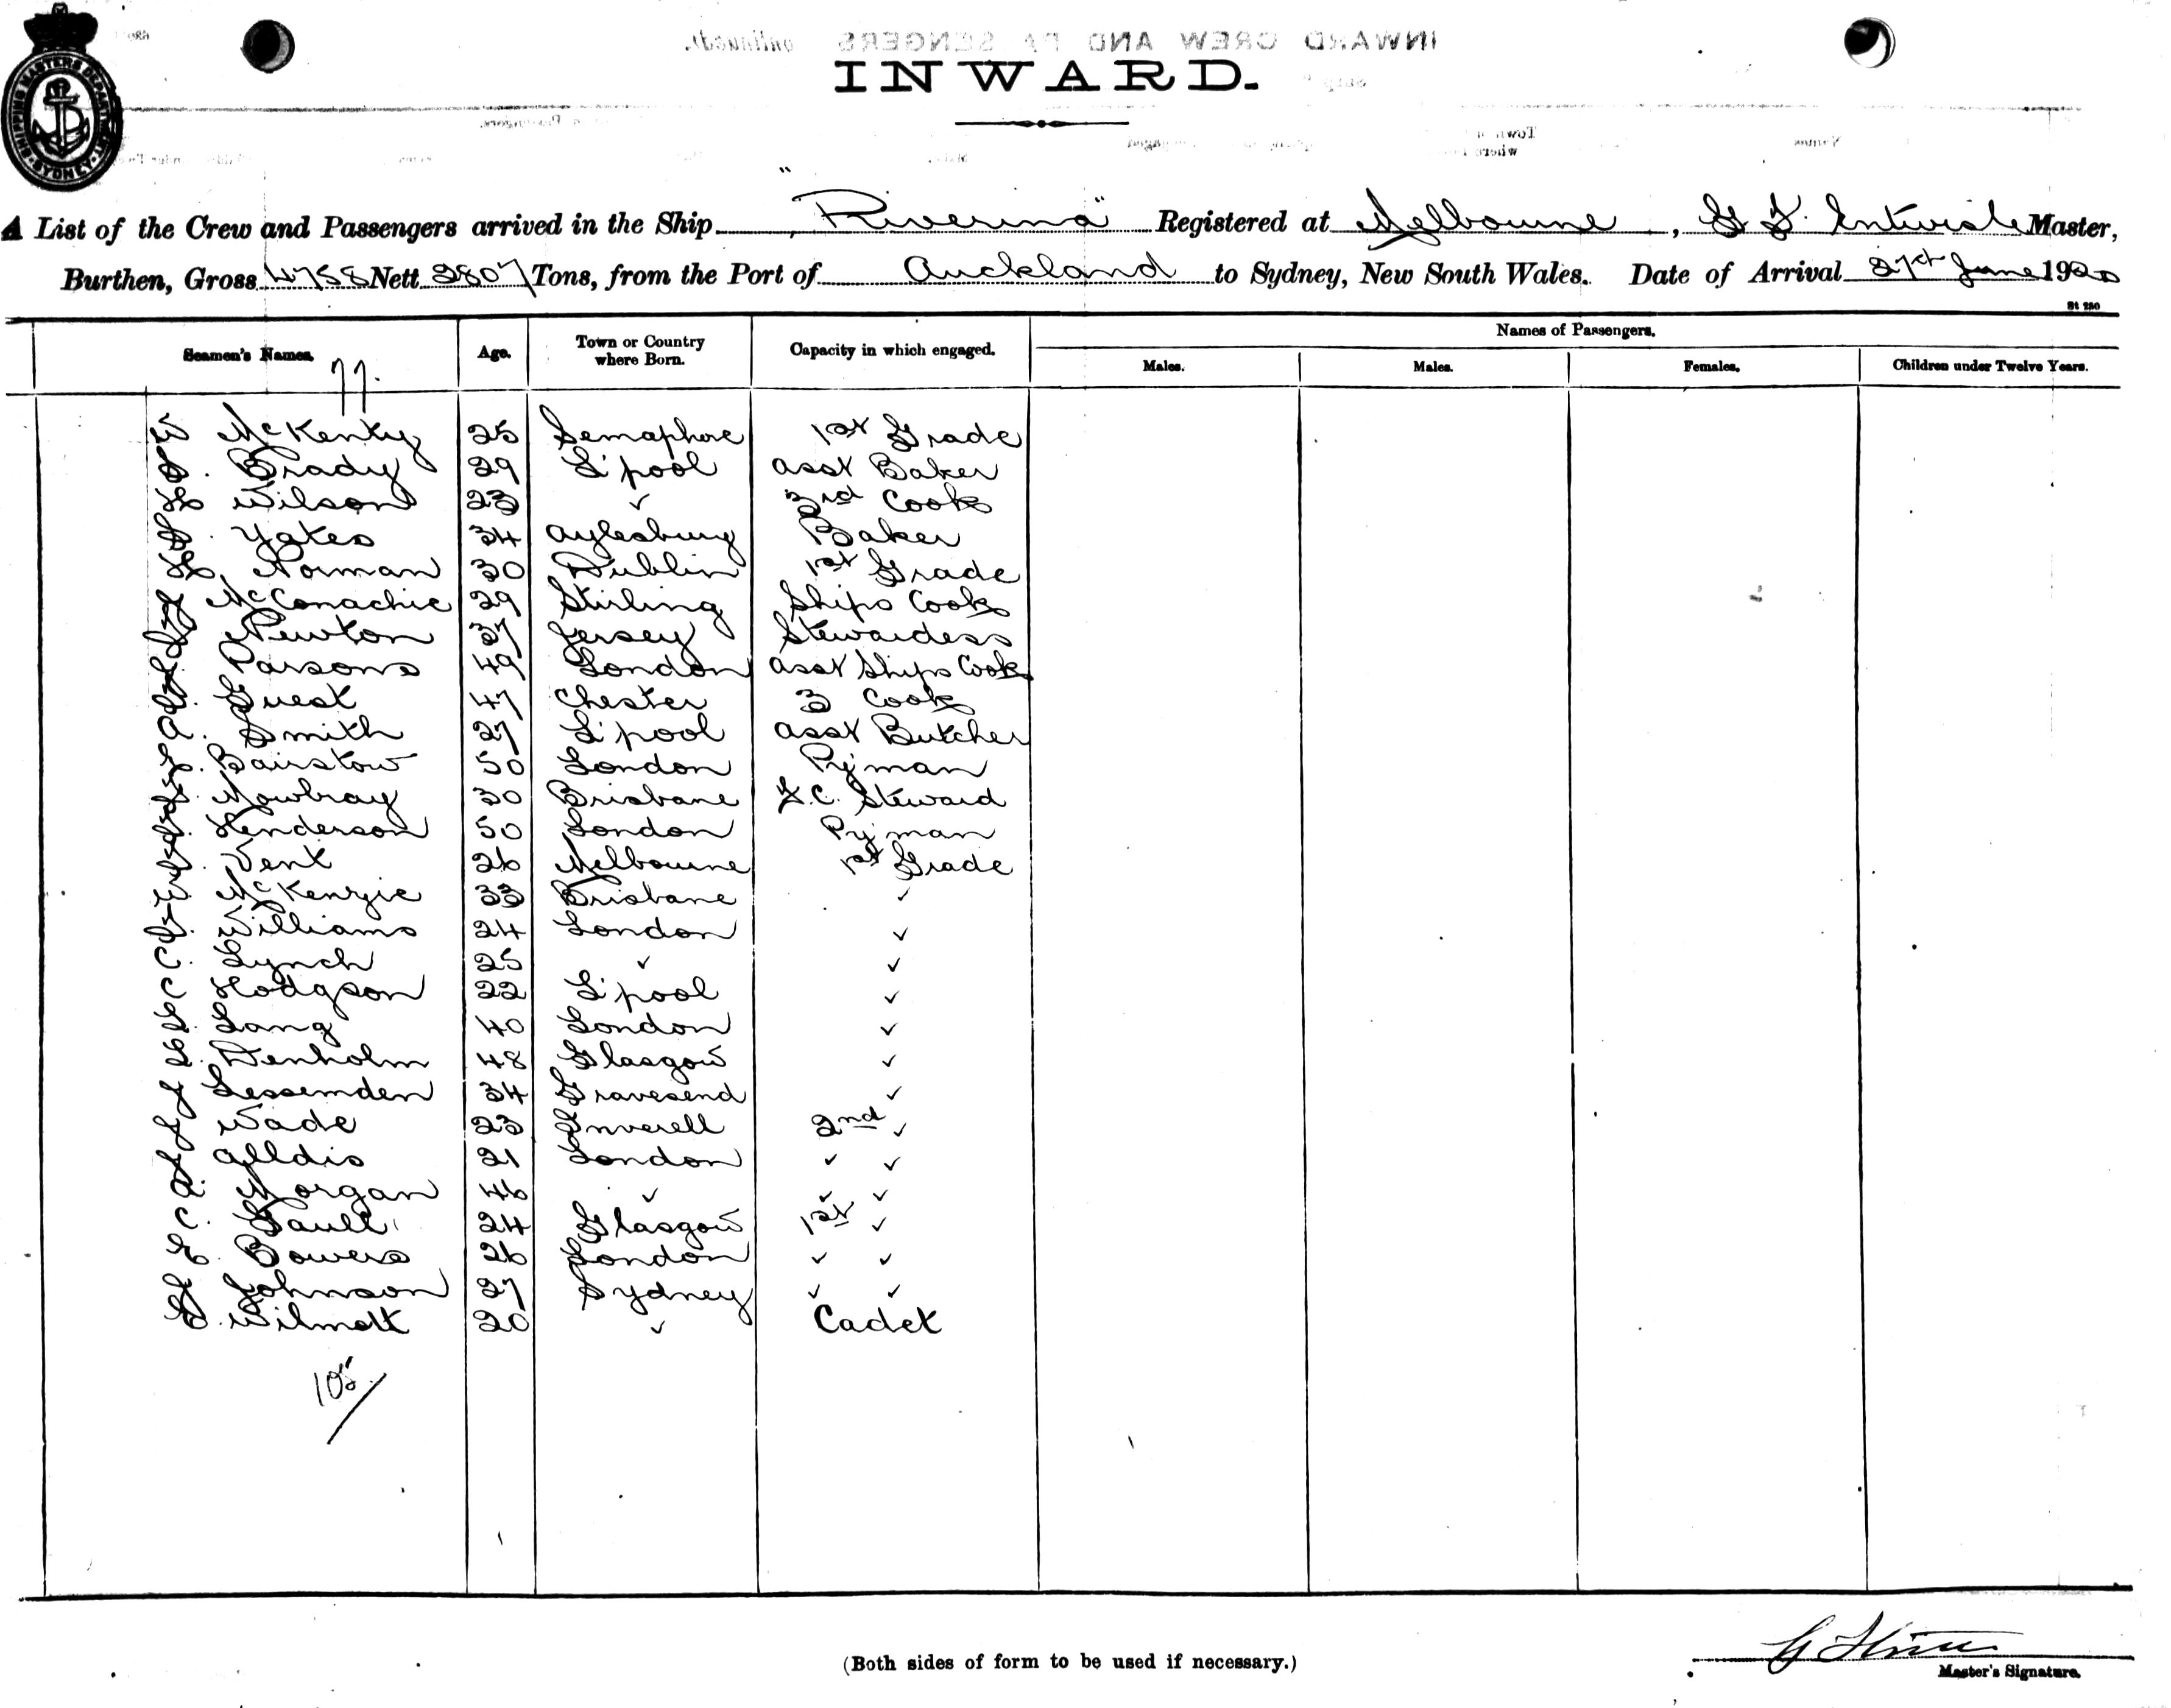 SHIPPING MASTERS DEPARTMENT. SYDNEY.
INWARD CREW AND PASSENGERS (Continued).
INWARD.
A List of the Crew and Passengers arrived in the Ship "Riverina" Registered at Melbourne, Entwisle Master,
Burthen, Gross 4758 Nett 2807 Tons, from the Port of Auckland to Sydney, New South Wales. Date of Arrival 21st June 1920
St 250
Seamen's Names. Age. Town or Country where Born. Capacity in which engaged. Names of Passengers.
Males. Males. Females. Children under Twelve Years.
77.
W McKenty 25 Semaphore 1st Grade
Brady 29 L'pool asst Baker
H Wilson 23 ✓ 3rd Cook
Yates 34 Aylesbury Baker
H. Norman 30 Dublin 1st Grade
J McConachie 29 Stirling Ships Cook
Newton 37 Jersey Stewardess
Parsons 49 London asst Ships Cook
Guest 47 Chester 3 Cook
A. Smith 27 L'pool asst Butcher
Bairstow 50 London Pyman
Mowbray 30 Brisbane F.C. Steward
Henderson 50 London Pyman
Vent 26 Melbourne 1st Grade
McKenzie 33 Brisbane ✓
Williams 24 London ✓
C. Lynch 25 ✓ ✓
C Hodgson 22 L'pool ✓
Lang 40 London ✓
Denholm 48 Glasgow ✓
J Lessemden 34 Gravesend ✓
J Wade 23 Inverell 2nd ✓
J Alldis 21 London ✓ ✓
Morgan 46 ✓ ✓ ✓
C. Gaull 24 Glasgow 1st ✓
E. Bowers 26 London ✓ ✓
J Johnson 27 Sydney ✓ ✓
G. Wilmott 20 ✓ Cadet
105
(Both sides of form to be used if necessary.)
Master's Signature.